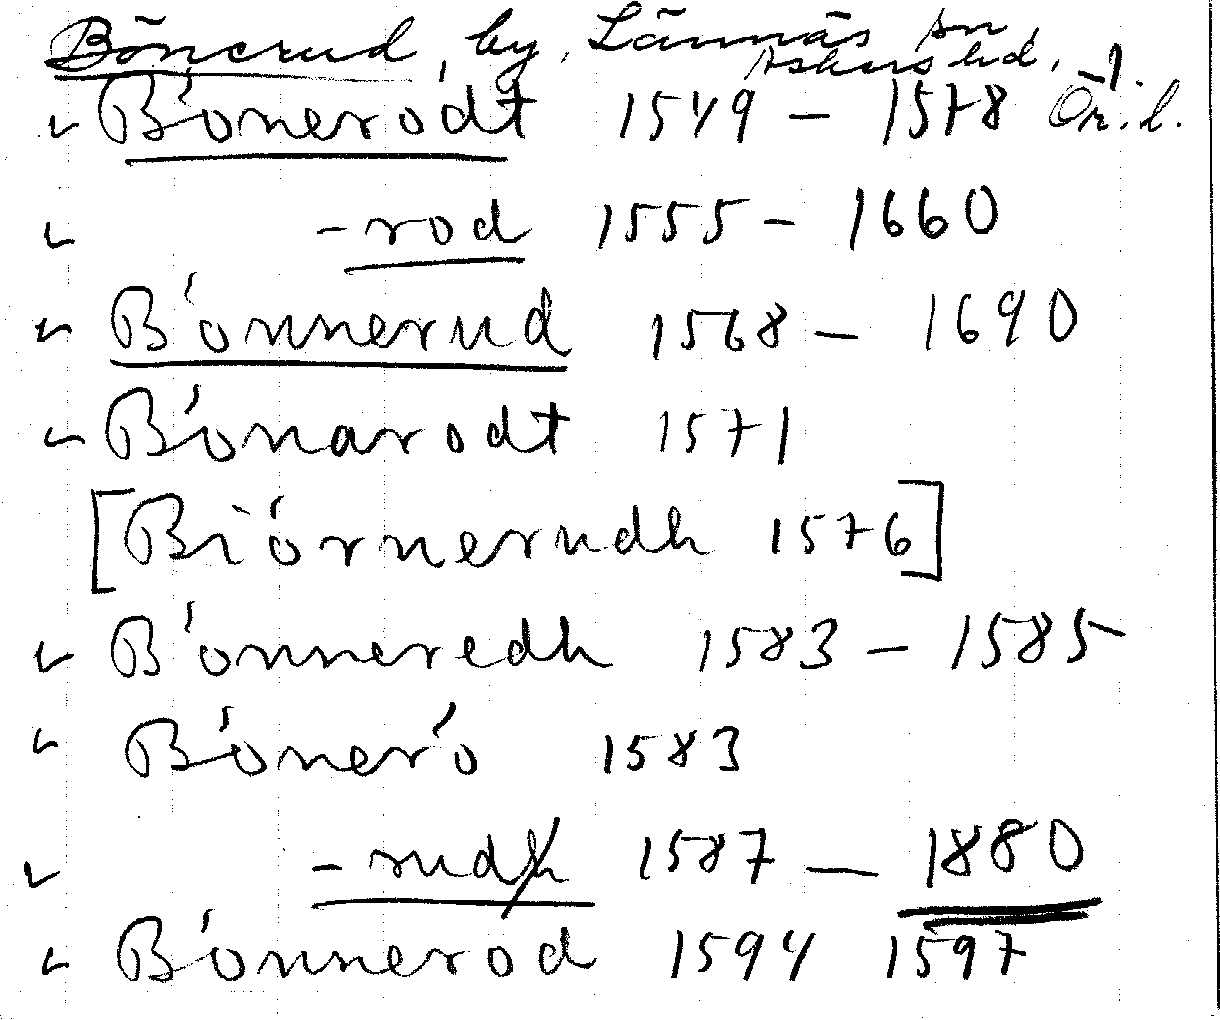 Bönerud, by, Lännäs sn,
Askers hd,
Ör. l.
Bönerodt 1549 – 1578
-rod 1555 – 1660
Bönnerud 1568 – 1690
Bönarodt 1571
[Biörnerudh 1576]
Bönneredh 1583 – 1585
Bönerö 1583
-rudh 1587 – 1880
Bönnerod 1594 1597